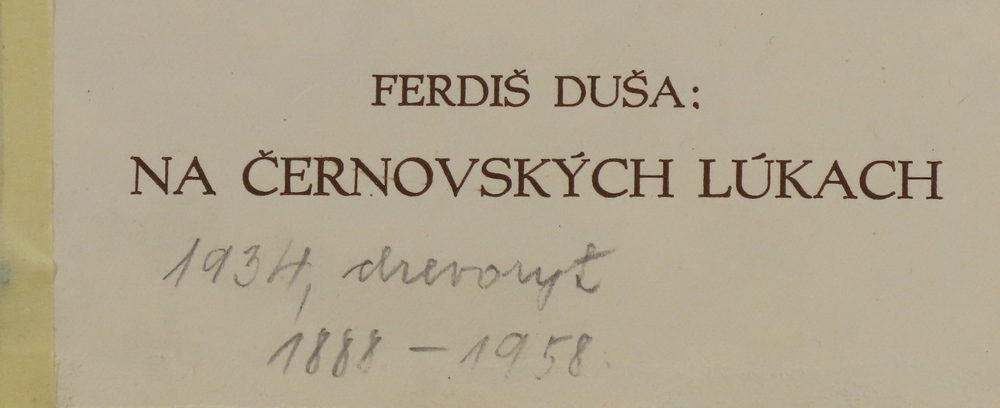 FERDIŠ DUŠA:
NA ČERNOVSKÝCH LÚKACH
1934, drevoryt
1888 – 1958